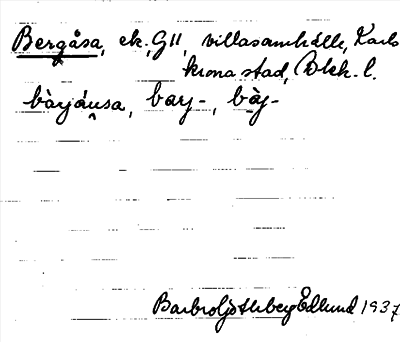 Bergåsa, ek. G11, villasamhälle, Karls
krona stad, Blek. l.
bàrjá̀usa, bar-, bàj-
Barbro Edlund 1937